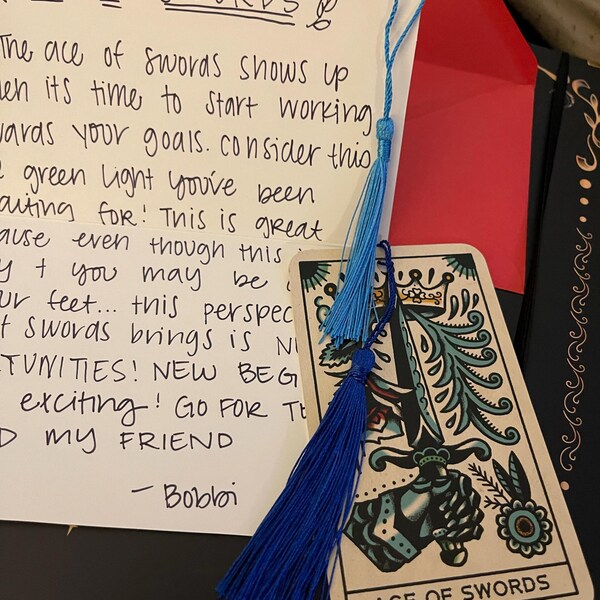 SWORDS
The ace of swords shows up
its time to start working
your goals. consider this
green light you've been
for! This is great
even though this
you may be
feet... this perspec
swords brings is
NEW BEG
exciting! GO FOR
MY FRIEND
- Bobbi
ACE OF SWORDS